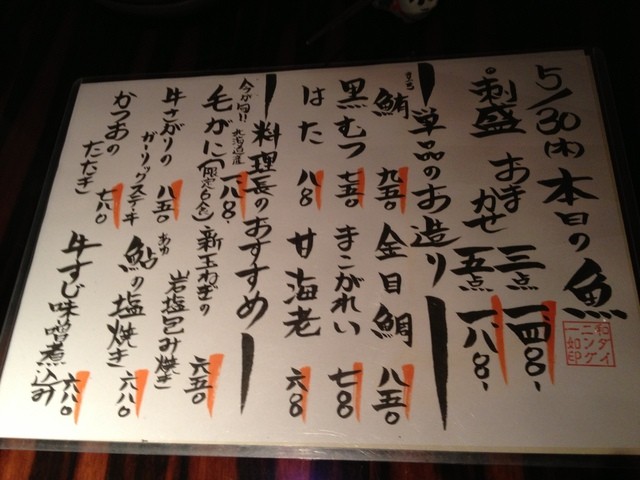 5/30(木)本日の魚
和ダイニング一如印
刺盛 おまかせ
三点 一四八〇、
五点 一八八〇、
単品のお造り
鮪 九五〇
金目鯛 八五〇
黒むつ 七五〇
まこがれい 七八〇
はた 八八〇
甘海老 六八〇
料理長のおすすめ
今が旬!! 北海道産
毛がに(限定6食) 一八八〇、
新玉ねぎの岩塩包み焼き 六五〇
牛さがりのガーリックステーキ 八五〇
あゆ
鮎の塩焼き 六八〇
かつおのたたき 七八〇
牛すじ味噌煮込み 六八〇